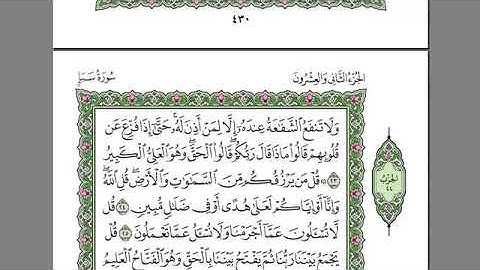 ٤٣٠
الجزء الثاني والعشرون
سورة سبإ
وَلَا تَنفَعُ ٱلشَّفَٰعَةُ عِندَهُۥٓ إِلَّا لِمَنْ أَذِنَ لَهُۥ ۚ حَتَّىٰٓ إِذَا فُزِّعَ عَن
قُلُوبِهِمْ قَالُوا۟ مَاذَا قَالَ رَبُّكُمْ ۖ قَالُوا۟ ٱلْحَقَّ ۖ وَهُوَ ٱلْعَلِىُّ ٱلْكَبِيرُ
﴿٢٣﴾ ۞ قُلْ مَن يَرْزُقُكُم مِّنَ ٱلسَّمَٰوَٰتِ وَٱلْأَرْضِ ۖ قُلِ ٱللَّهُ ۖ
وَإِنَّآ أَوْ إِيَّاكُمْ لَعَلَىٰ هُدًى أَوْ فِى ضَلَٰلٍ مُّبِينٍ ﴿٢٤﴾ قُل
لَّا تُسْـَٔلُونَ عَمَّآ أَجْرَمْنَا وَلَا نُسْـَٔلُ عَمَّا تَعْمَلُونَ ﴿٢٥﴾ قُلْ
يَجْمَعُ بَيْنَنَا رَبُّنَا ثُمَّ يَفْتَحُ بَيْنَنَا بِٱلْحَقِّ وَهُوَ ٱلْفَتَّاحُ ٱلْعَلِيمُ
الحزب
٤٤